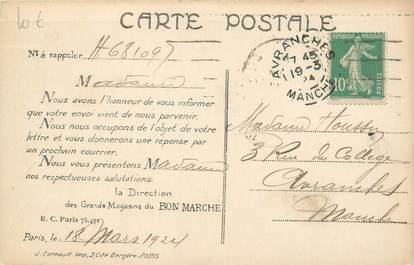 10 €
CARTE POSTALE
Nº à rappeler H 681097
Madame
Nous avons l'honneur de vous informer
que votre envoi vient de nous parvenir.
Nous nous occupons de l'objet de votre
lettre et vous donnerons une réponse par
un prochain courrier.
Nous vous présentons Madame
nos respectueuses salutations.
la Direction
des Grands Magasins du BON MARCHÉ
R. C. Paris 75.471
Paris, le 18 Mars 1924
J. Cormault. Imp., 3, Cité Bergère.-PARIS
AVRANCHES
7 45
19 - 3
24
MANCHE
REPUBLIQUE FRANÇAISE
10
Madame Houssin
3 Rue du Collège
Avranches
Manche